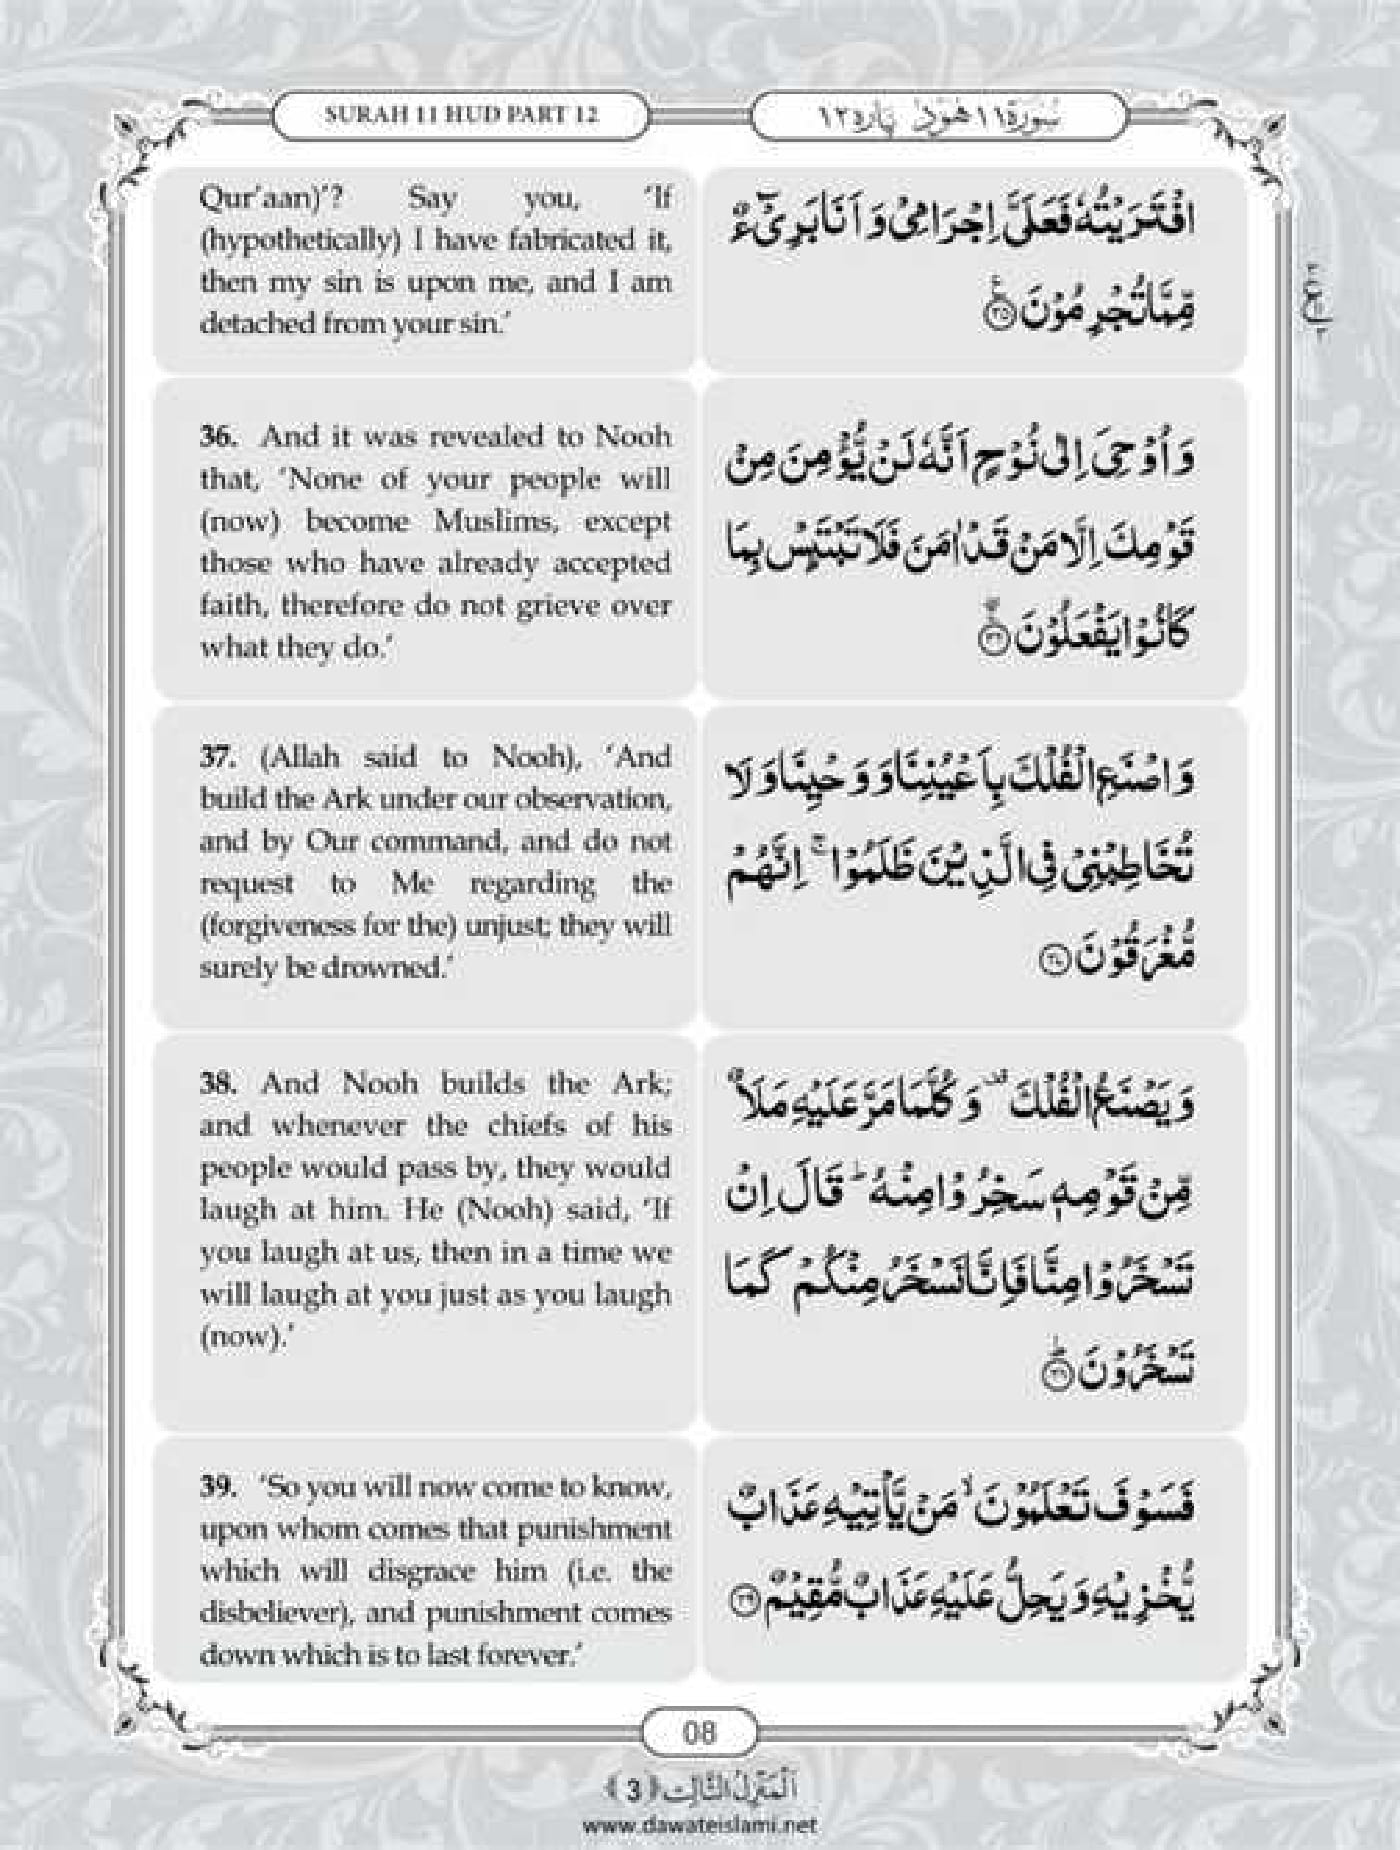 SURAH 11 HUD PART 12
سُوْرَة ١١ هُوْد پارہ ١٢
Qur'aan)'? Say you, 'If
(hypothetically) I have fabricated it,
then my sin is upon me, and I am
detached from your sin.'
افْتَرَيْتُهٗ فَعَلَيَّ اِجْرَامِيْ وَ اَنَا بَرِيْٓءٌ
مِّمَّا تُجْرِمُوْنَ ﴿٣٥﴾
36. And it was revealed to Nooh
that, 'None of your people will
(now) become Muslims, except
those who have already accepted
faith, therefore do not grieve over
what they do.'
وَ اُوْحِيَ اِلٰى نُوْحٍ اَنَّهٗ لَنْ يُّؤْمِنَ مِنْ
قَوْمِكَ اِلَّا مَنْ قَدْ اٰمَنَ فَلَا تَبْتَىِٕسْ بِمَا
كَانُوْا يَفْعَلُوْنَ ﴿٣٦﴾
37. (Allah said to Nooh), 'And
build the Ark under our observation,
and by Our command, and do not
request to Me regarding the
(forgiveness for the) unjust; they will
surely be drowned.'
وَ اصْنَعِ الْفُلْكَ بِاَعْيُنِنَا وَ وَحْيِنَا وَ لَا
تُخَاطِبْنِيْ فِي الَّذِيْنَ ظَلَمُوْا ۚ اِنَّهُمْ
مُّغْرَقُوْنَ ﴿٣٧﴾
38. And Nooh builds the Ark;
and whenever the chiefs of his
people would pass by, they would
laugh at him. He (Nooh) said, 'If
you laugh at us, then in a time we
will laugh at you just as you laugh
(now).'
وَ يَصْنَعُ الْفُلْكَ ۫ وَ كُلَّمَا مَرَّ عَلَيْهِ مَلَاٌ
مِّنْ قَوْمِهٖ سَخِرُوْا مِنْهُ ؕ قَالَ اِنْ
تَسْخَرُوْا مِنَّا فَاِنَّا نَسْخَرُ مِنْكُمْ كَمَا
تَسْخَرُوْنَ ﴿٣٨﴾
39. 'So you will now come to know,
upon whom comes that punishment
which will disgrace him (i.e. the
disbeliever), and punishment comes
down which is to last forever.'
فَسَوْفَ تَعْلَمُوْنَ ۙ مَنْ يَّاْتِيْهِ عَذَابٌ
يُّخْزِيْهِ وَ يَحِلُّ عَلَيْهِ عَذَابٌ مُّقِيْمٌ ﴿٣٩﴾
08
اَلْمَنْزِلُ الثَّالِث ﴿3﴾
www.dawateislami.net